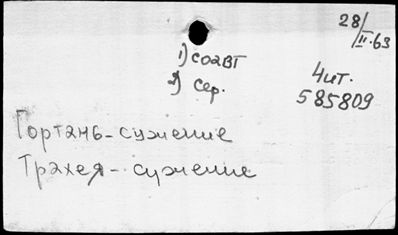 28/II.63
1) СО2ВТ
2) Сер.
Чит.
585809
Гортань-сужение
Трахея-сужение